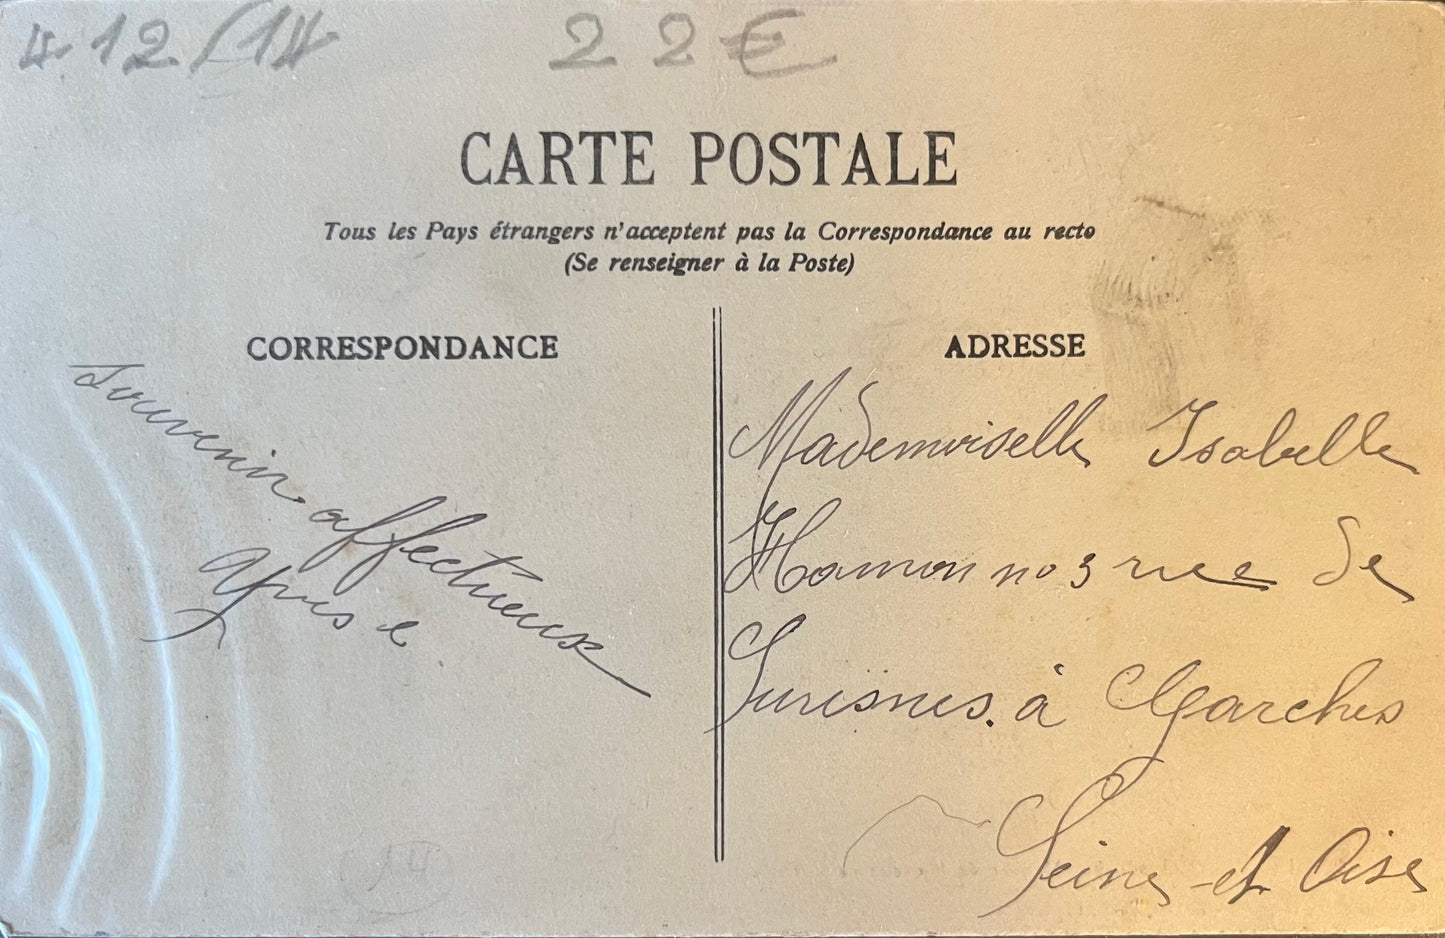 4.12/14 22€
CARTE POSTALE
Tous les Pays étrangers n'acceptent pas la Correspondance au recto
(Se renseigner à la Poste)
CORRESPONDANCE
Souvenir affectueux
Yves
ADRESSE
Mademoiselle Isabelle
Hamon no 3 rue de
Suresnes. à Garches
Seine et Oise